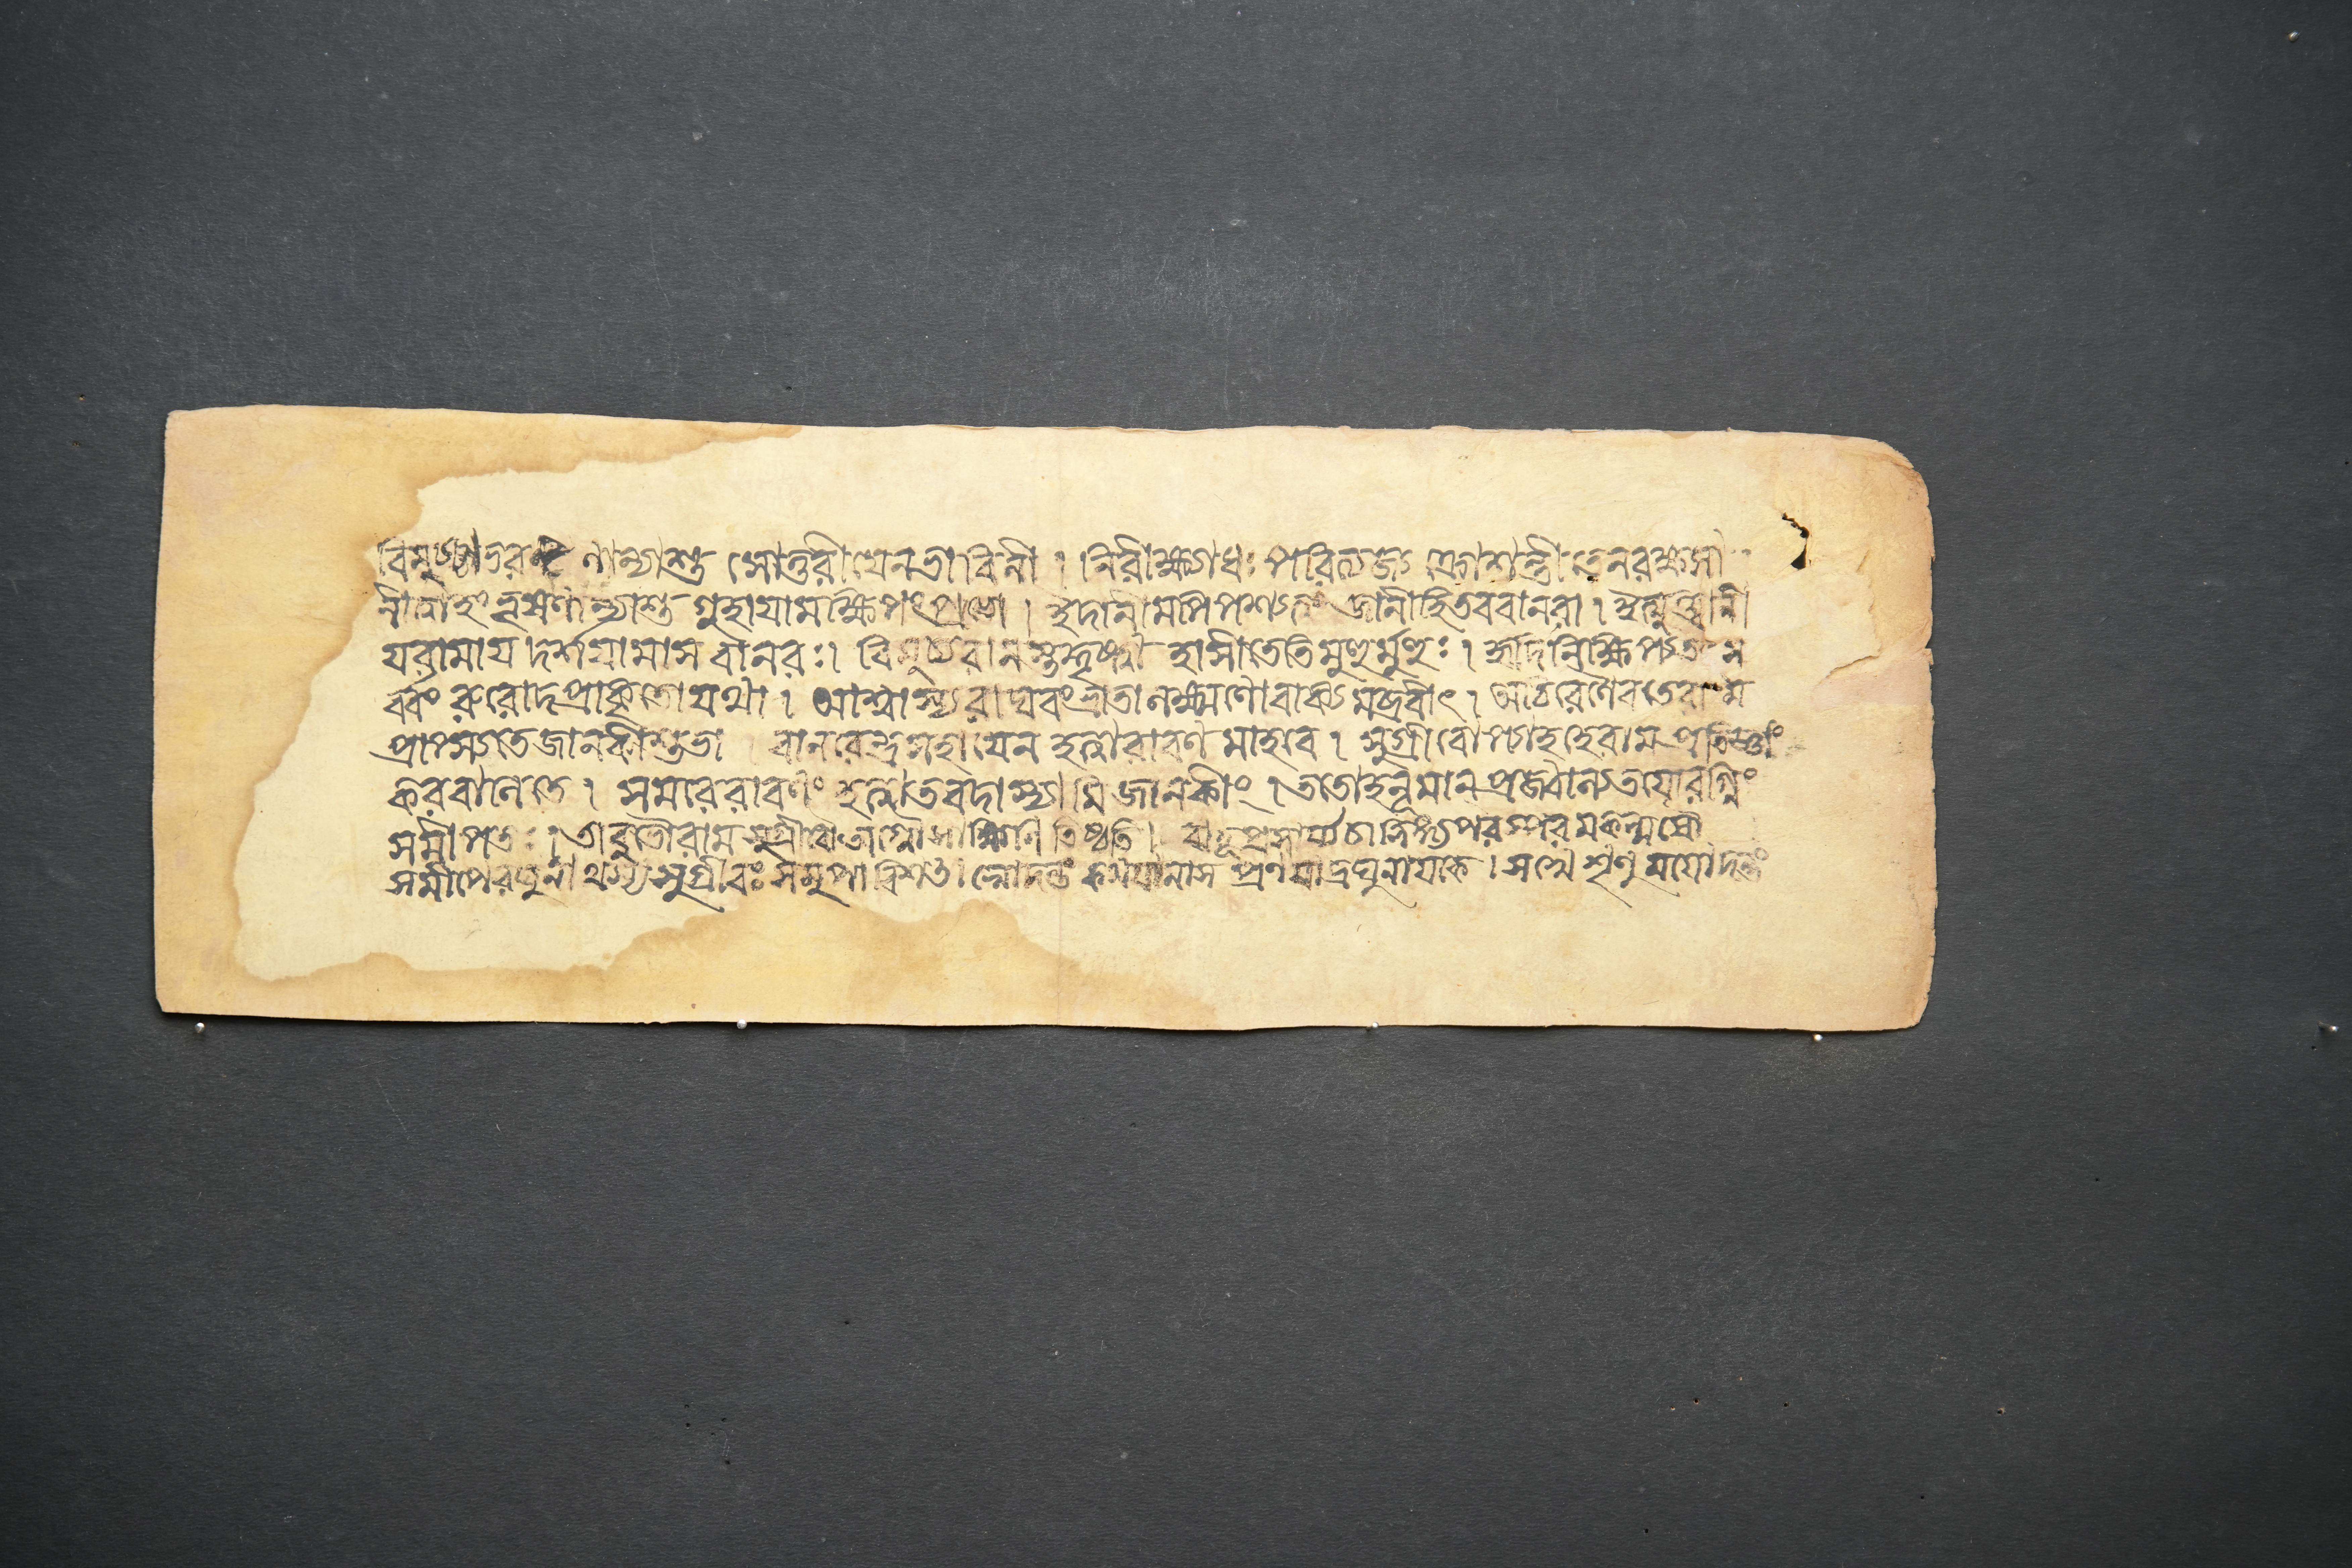 বিমুচ্যাভরণান্যাশু সোত্তরীয়েনভাবিনী । নিরীক্ষ্যাধঃ পরিত্যজ্য ক্রোশন্তী তেনরক্ষসা
নীতাহং ভূষণান্যাশু গুহায়ামক্ষিপংপ্রভো । ইদানীমপিপশ্যত্বং জানীহিতববানবা । ইত্যুক্ত্বানী
যরামায দর্শযামাস বানরঃ। বিমুচ্যরামস্তদ্দৃষ্ট্বা হাসীতেতিমুহুর্মুহুঃ । হৃদিনিক্ষিপ্যতৎস
র্ব্বং রুরোদপ্রাকৃতোযথা । আশ্বাস্যরাঘবংভ্রাতা লক্ষ্মণোবাক্যমব্রবীৎ । অচিরেণৈবতেরাম
প্রাপ্সতেজানকীশুভা । বানরেন্দ্রসহাযেন হত্বারাবণমাহবে । সুগ্রীবোপ্যাহহেরাম প্রতিজ্ঞাং
করবানিতে । সমরেরাবণং হত্বাতবদাস্যামিজানকীং । ততোহনূমানপ্রজ্বাল্যতযোরগ্নিং
সমীপতঃ । তাবুভৌরামসুগ্রীবৌঅগ্নৌসাক্ষিণিতিষ্ঠতি । বাহূপ্রসার্য্যচালিঙ্গ্যপরস্পরমকল্মষৌ
সমীপেরঘুনাথস্য সুগ্রীবঃ সমুপাবিশৎ। স্বোদন্তং কথযামাস প্রণযাদ্রঘুনাযকে । সখে শৃণু মমোদন্তং